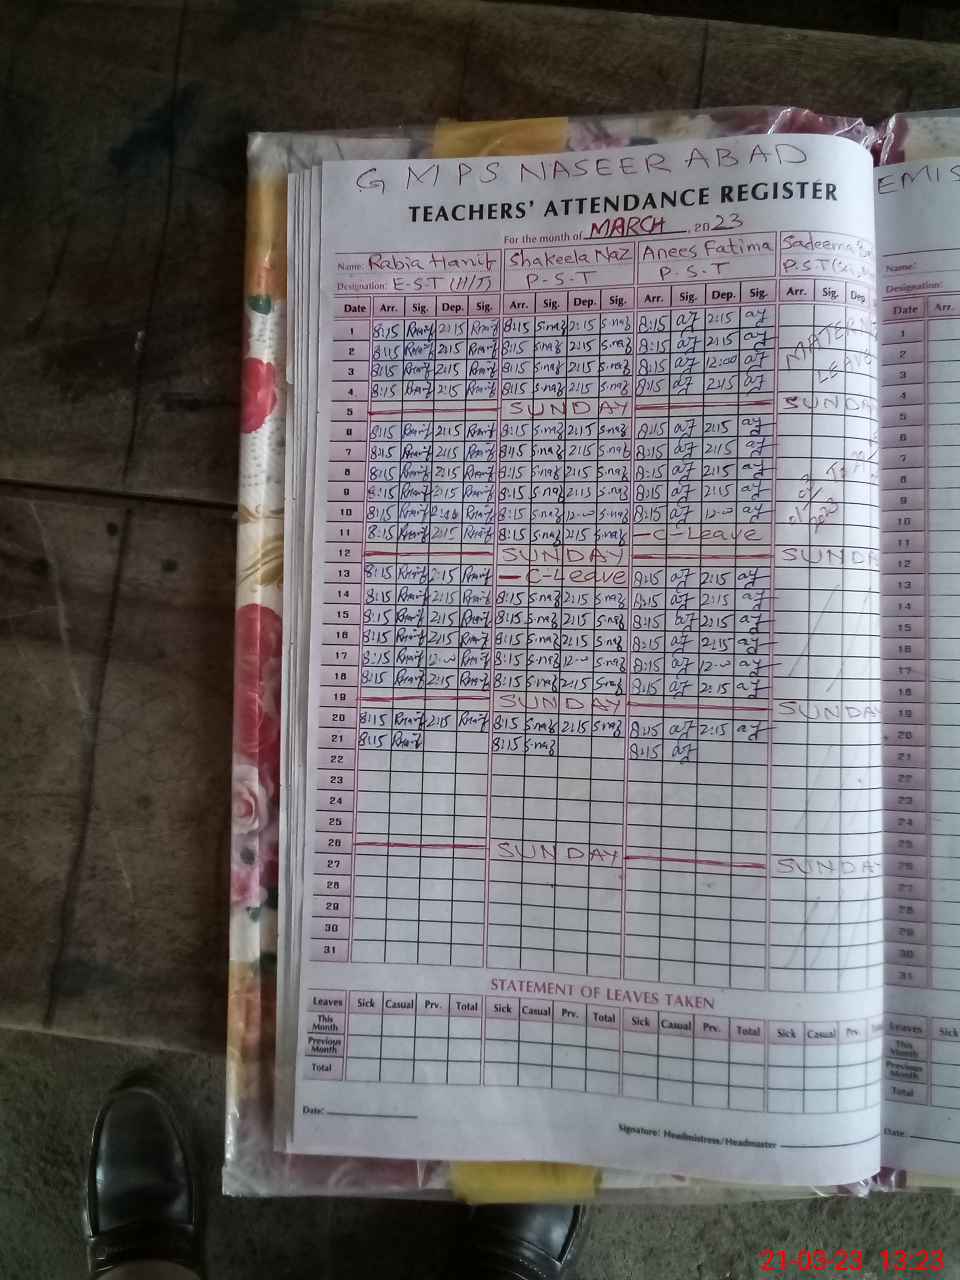 G M P S NASEER ABAD
EMIS
TEACHERS' ATTENDANCE REGISTER
For the month of MARCH, 2023
Name: Rabia Hanif Shakeela Naz Anees Fatima Sadeema
Designation: E-S-T (H/T) P-S-T P-S-T P.S.T
Name:
Designation:
Date Arr. Sig. Dep. Sig. Arr. Sig. Dep. Sig. Arr. Sig. Dep. Sig. Arr. Sig. Dep.
Date Arr.
1 8:15 Rhanif 2:15 Rhanif 8:15 S.naz 2:15 S.naz 8:15 af 2:15 af
2 8:15 Rhanif 2:15 Rhanif 8:15 S.naz 2:15 S.naz 8:15 af 2:15 af MATERN
3 8:15 Rhanif 2:15 Rhanif 8:15 S.naz 2:15 S.naz 8:15 af 12:00 af LEAVE
4 8:15 Rhanif 2:15 Rhanif 8:15 S.naz 2:15 S.naz 8:15 af 2:15 af
5 SUNDAY SUNDA
6 8:15 Rhanif 2:15 Rhanif 8:15 S.naz 2:15 S.naz 8:15 af 2:15 af
7 8:15 Rhanif 2:15 Rhanif 8:15 S.naz 2:15 S.naz 8:15 af 2:15 af
8 8:15 Rhanif 2:15 Rhanif 8:15 S.naz 2:15 S.naz 8:15 af 2:15 af To
9 8:15 Rhanif 2:15 Rhanif 8:15 S.naz 2:15 S.naz 8:15 af 2:15 af
10 8:15 Rhanif 12:00 Rhanif 8:15 S.naz 12-00 S.naz 8:15 af 12-00 af 2023
11 8:15 Rhanif 2:15 Rhanif 8:15 S.naz 2:15 S.naz C-Leave
12 SUNDAY SUNDA
13 8:15 Rhanif 2:15 Rhanif C-Leave 8:15 af 2:15 af
14 8:15 Rhanif 2:15 Rhanif 8:15 S.naz 2:15 S.naz 8:15 af 2:15 af
15 8:15 Rhanif 2:15 Rhanif 8:15 S.naz 2:15 S.naz 8:15 af 2:15 af
16 8:15 Rhanif 2:15 Rhanif 8:15 S.naz 2:15 S.naz 8:15 af 2:15 af
17 8:15 Rhanif 12-00 Rhanif 8:15 S.naz 12-00 S.naz 8:15 af 12-00 af
18 8:15 Rhanif 2:15 Rhanif 8:15 S.naz 2:15 S.naz 8:15 af 2:15 af
19 SUNDAY SUNDA
20 8:15 Rhanif 2:15 Rhanif 8:15 S.naz 2:15 S.naz 8:15 af 2:15 af
21 8:15 Rhanif 8:15 S.naz 8:15 af
22
23
24
25
26 SUNDAY SUNDA
27
28
29
30
31
1
2
3
4
5
6
7
8
9
10
11
12
13
14
15
16
17
18
19
20
21
22
23
24
25
26
27
28
29
30
31
STATEMENT OF LEAVES TAKEN
Leaves Sick Casual Prv. Total Sick Casual Prv. Total Sick Casual Prv. Total Sick Casual Prv.
This Month
Previous Month
Total
Leaves Sick
This Month
Previous Month
Total
Date:
Signature: Headmistress/Headmaster
Date:
21-03-23 13:23